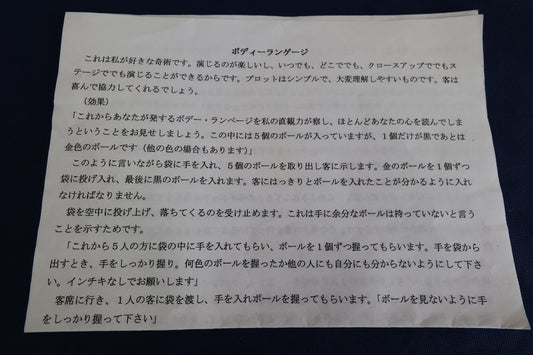 ボディーランゲージ
これは私が好きな奇術です。演じるのが楽しいし、いつでも、どこででも、クロースアップででもス
テージででも演じることができるからです。プロットはシンプルで、大変理解しやすいものです。客は
喜んで協力してくれるでしょう。
（効果）
「これからあなたが発するボデー・ランベージを私の直観力が察し、ほとんどあなたの心を読んでしま
うということをお見せしましょう。この中には５個のボールが入っていますが、１個だけが黒であとは
金色のボールです（他の色の場合もあります）」
このように言いながら袋に手を入れ、５個のボールを取り出し客に示します。金のボールを１個ずつ
袋に投げ入れ、最後に黒のボールを入れます。客にはっきりとボールを入れたことが分かるように入れ
なければなりません。
袋を空中に投げ上げ、落ちてくるのを受け止めます。これは手に余分なボールは持っていないと言う
ことを示すためです。
「これから５人の方に袋の中に手を入れてもらい、ボールを１個ずつ握ってもらいます。手を袋から
出すとき、手をしっかり握り。何色のボールを握ったか他の人にも自分にも分からないようにして下さ
い。インチキなしでお願いします」
客席に行き、１人の客に袋を渡し、手を入れボールを握ってもらいます。「ボールを見ないように手
をしっかり握って下さい」